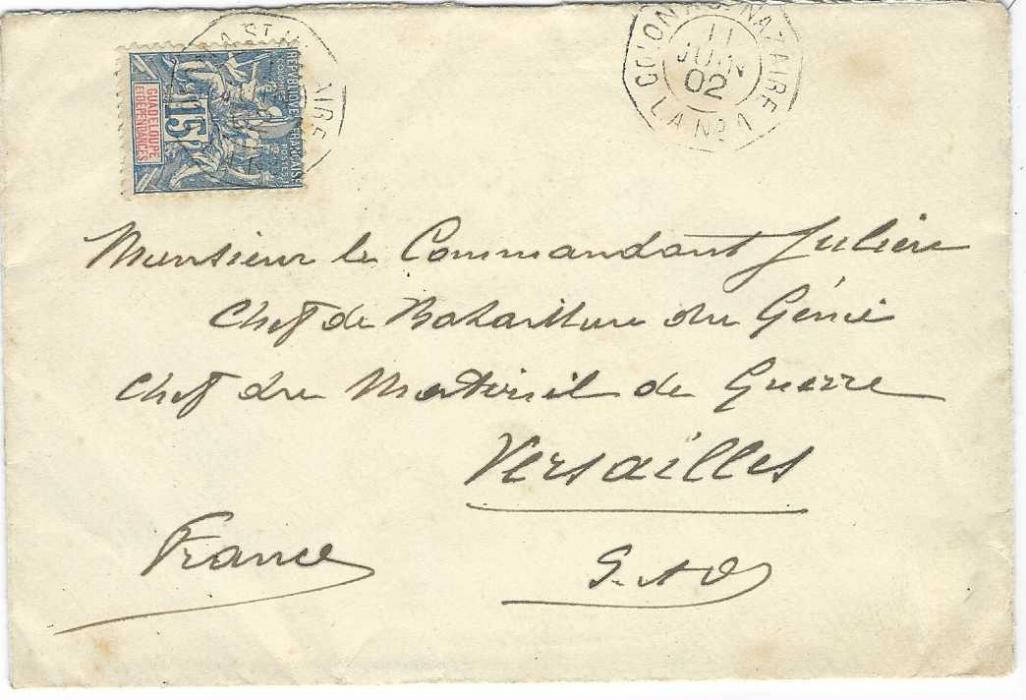 COLON A ST NAZAIRE
11
JUIN
02
L A Nº 1
A ST NAZAIRE
REPUBLIQUE FRANÇAISE
COLONIES POSTES
15
GUADELOUPE
ET DEPENDANCES
Monsieur le Commandant Julien
Chef de Bataillon du Génie
Chef du Matériel de Guerre
Versailles
France
S. et O